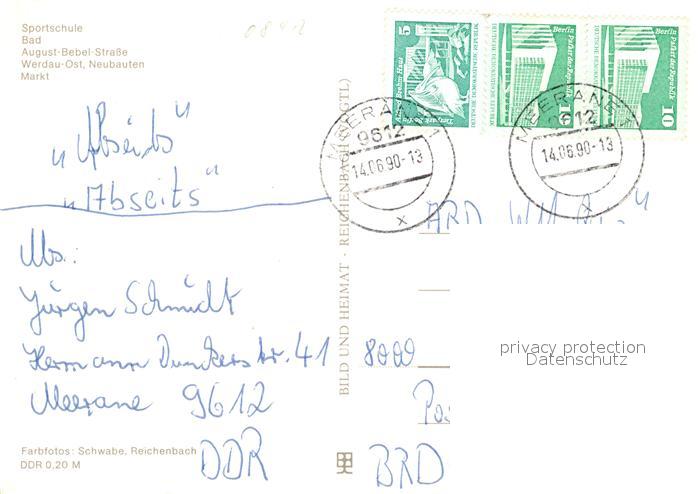 Sportschule
Bad
August-Bebel-Straße
Werdau-Ost, Neubauten
Markt
„Abseits"
„Abseits"
Abs.:
Jürgen Schmidt
Hermann Dunckerstr. 41
Meerane 9612
DDR
Farbfotos: Schwabe, Reichenbach
DDR 0,20 M
BILD UND HEIMAT · REICHENBACH (VOGTL)
5
Alfred Brehm Haus
DEUTSCHE DEMOKRATISCHE REPUBLIK
10
Berlin Palast der Republik
DEUTSCHE DEMOKRATISCHE REPUBLIK
10
Berlin Palast der Republik
MEERANE 1
9612
14.06.90-13
x
MEERANE 1
9612
14.06.90-13
x
ARD
8000
BRD
privacy protection
Datenschutz